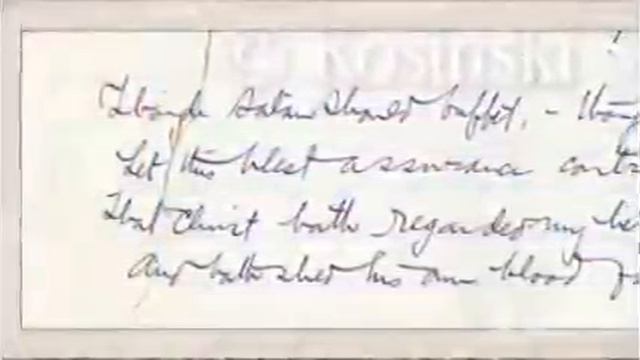 Kosinski
Though Satan should buffet, - thoug
Let this blest assurance contr
That Christ hath regarded my he
And hath shed his own blood f